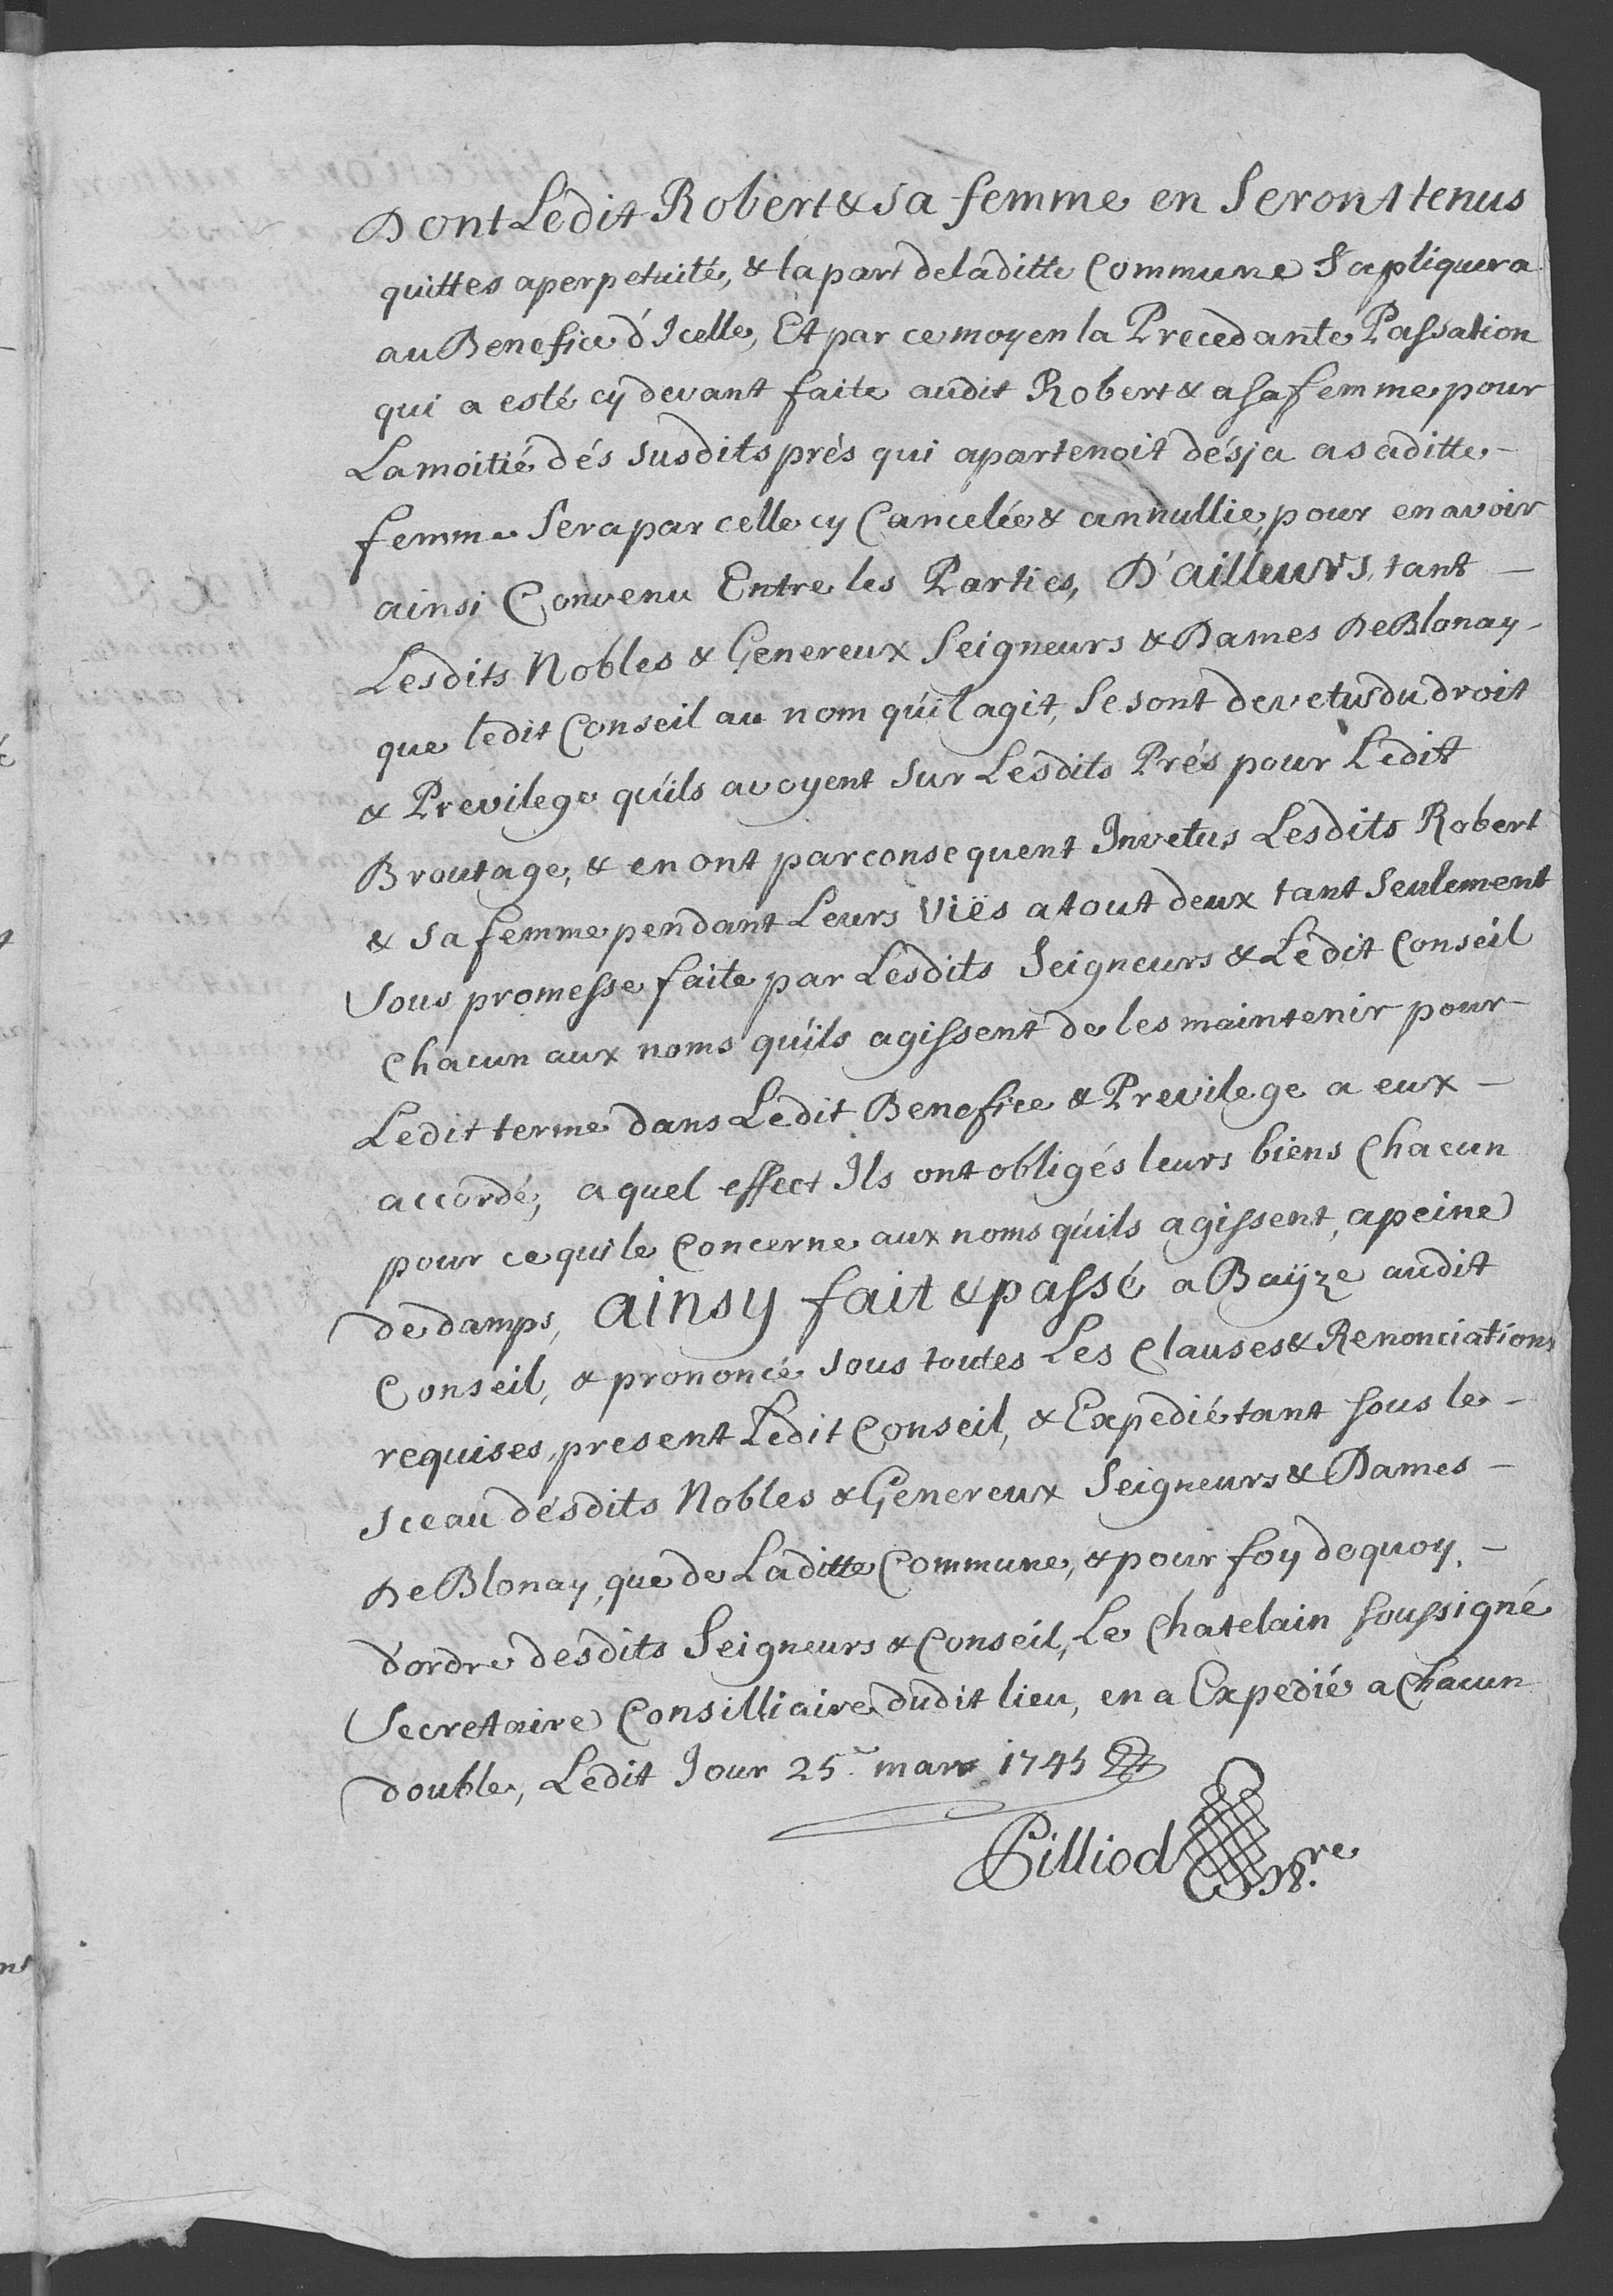 Dont Ledit Robert & sa femme en Seront tenus
quittes a perpetuité, & la part de laditte Commune S'apliquera
au Benefice d'Icelle, Et par ce moyen la Precedante Passation
qui a esté cy devant faite audit Robert & a sa femme pour
La moitié dés susdits prés qui apartenoit désja a saditte -
femme Sera par celle cy Cancelée & annullie, pour en avoir
ainsi Convenu Entre les Parties, D'ailleurs, tant -
Lesdits Nobles & Genereux Seigneurs & Dames De Blonay -
que ledit Conseil au nom qu'il agit, Se sont devetus du droit
& Previlege qu'ils avoyent sur Lesdits Prés pour Ledit
Broutage, & en ont par consequent Invetus Lesdits Robert
& sa femme pendant Leurs Viës a tout deux tant Seulement
Sous promesse faite par Lesdits Seigneurs & Ledit Conseil
Chacun aux noms qu'ils agissent de les maintenir pour -
Ledit terme dans Ledit Benefice & Previlege a eux -
accordé, a quel effect Ils ont obligés leurs biens Chacun
pour ce qui le Concerne aux noms qu'ils agissent, a peine
de damps, ainsy fait & passé a Baÿze audit
Conseil, & prononcé sous toutes Les Clauses & Renonciations
requises, present Ledit Conseil, & Expedié tant sous le -
sceau désdits Nobles & Genereux Seigneurs & Dames -
De Blonay, que de Laditte Commune, & pour foy dequoy, -
d'ordre désdits Seigneurs & Conseil, Le Chatelain soussigné
Secretaire Consilliaire dudit lieu, en a Expedié a Chacun
double, Ledit Jour 25.e mars 1745
Pilliod